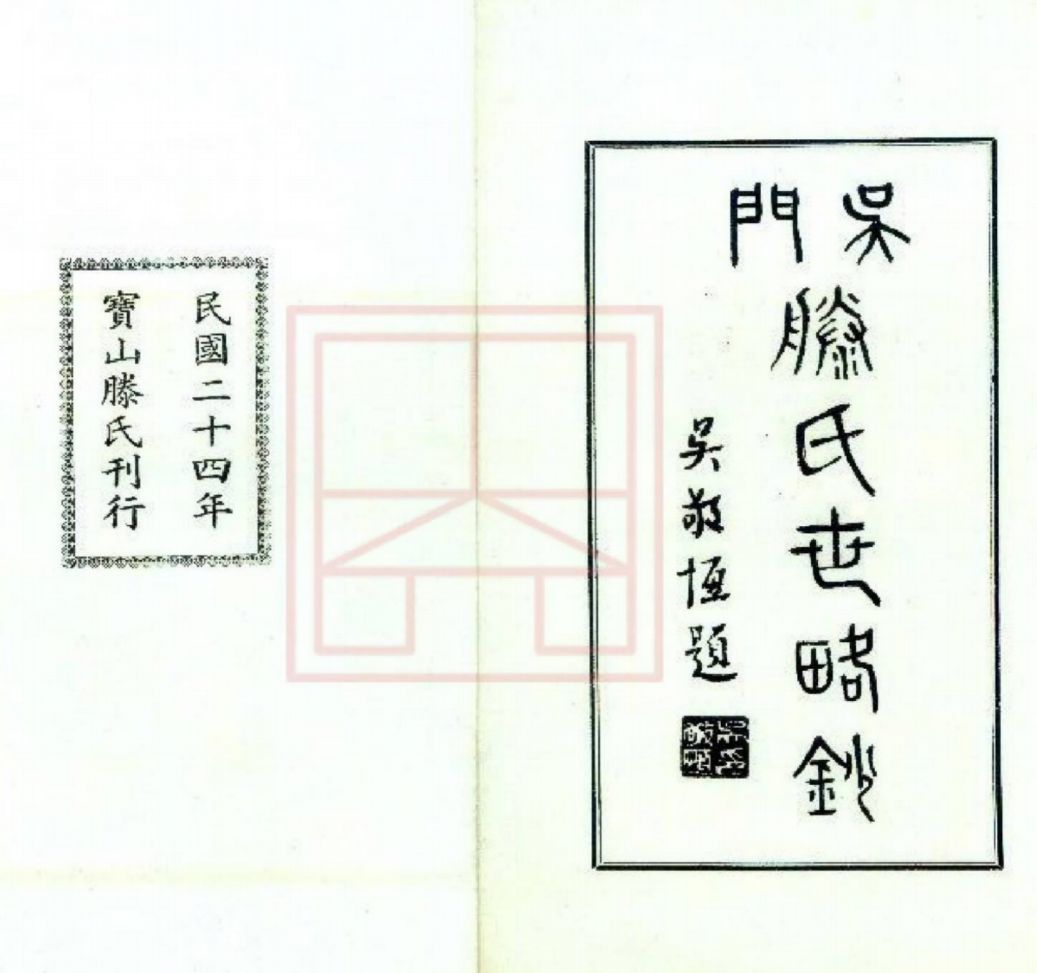 吳門
滕氏世略鈔
吳敬恆題
民國二十四年
寶山滕氏刊行